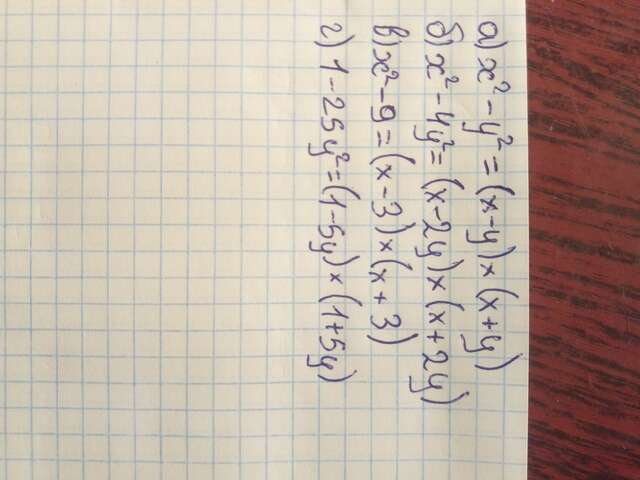 а) x² - y² = (x-y)×(x+y)
б) x² - 4y² = (x-2y)×(x+2y)
в) x² - 9 = (x-3)×(x+3)
г) 1 - 25y² = (1-5y)×(1+5y)